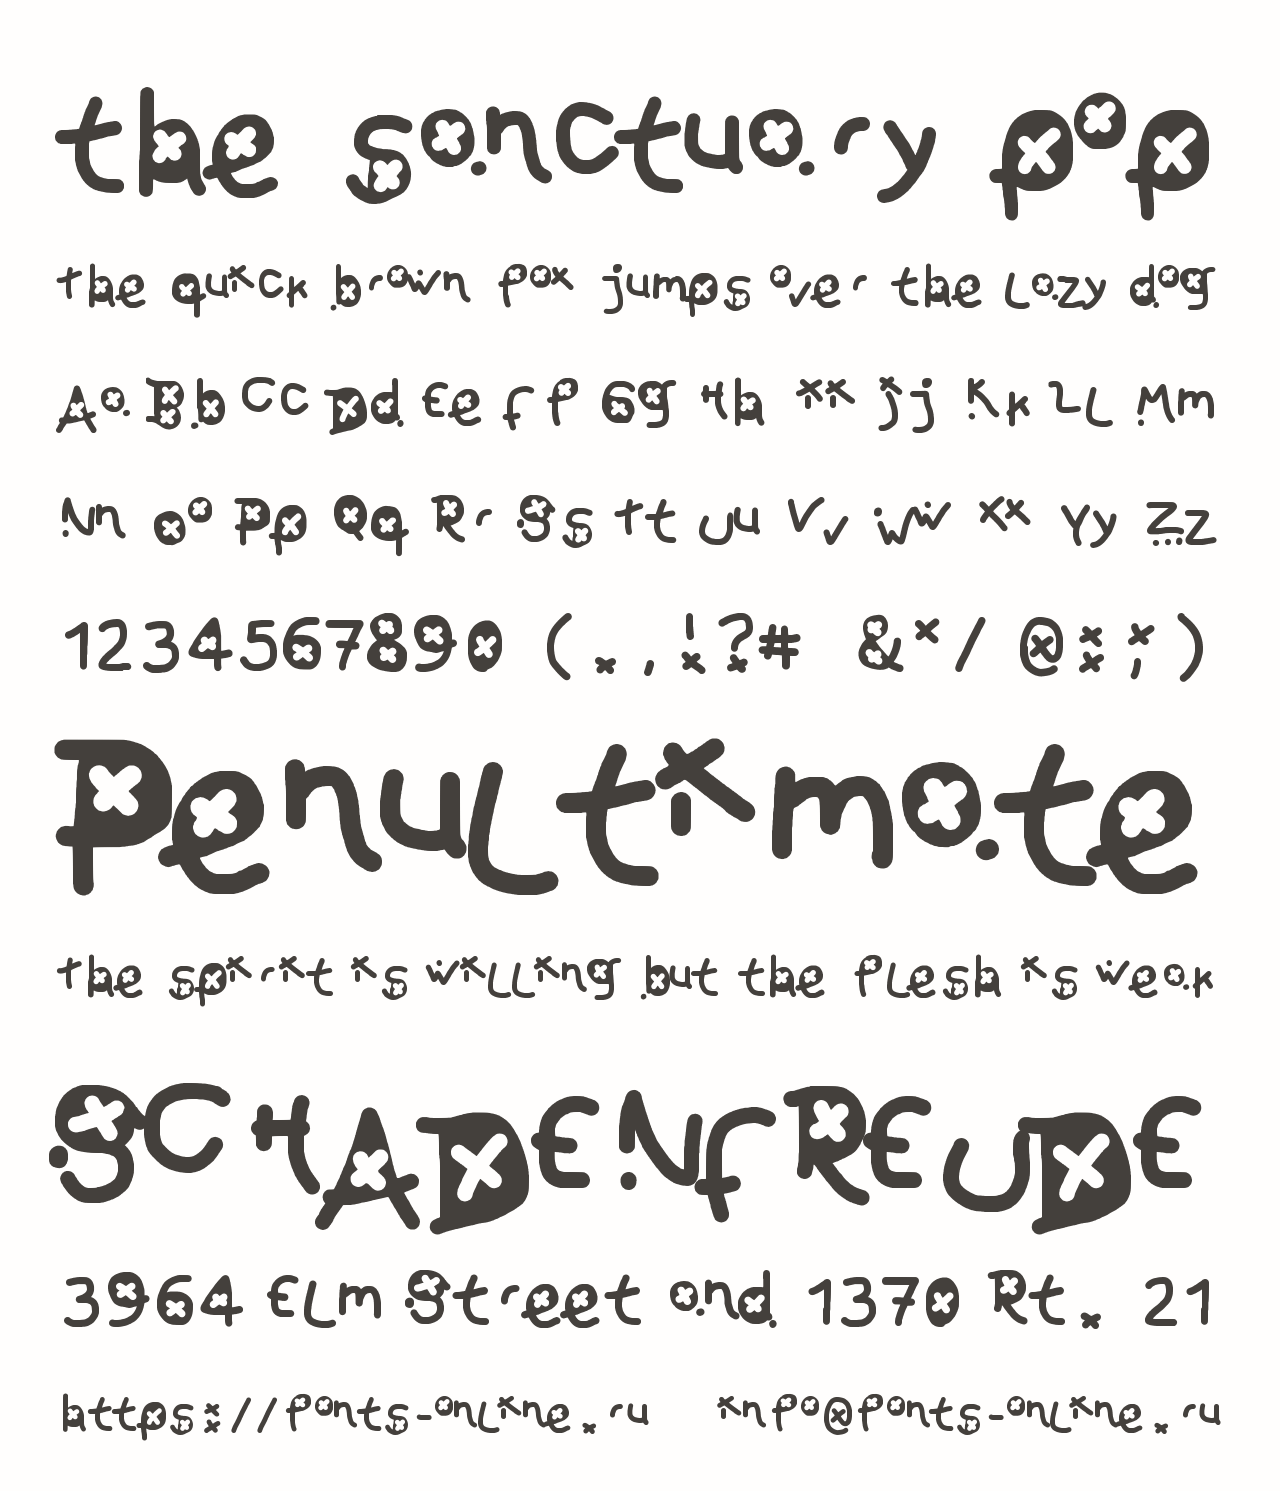 the sanctuary pop
the quick brown fox jumps over the lazy dog
Aa Bb Cc Dd Ee Ff Gg Hh Ii Jj Kk Ll Mm
Nn Oo Pp Qq Rr Ss Tt Uu Vv Ww Xx Yy Zz
1234567890 (.,!?# &*/ @:;)
Penultimate
the spirit is willing but the flesh is weak
SCHADENFREUDE
3964 Elm Street and 1370 Rt. 21
https://fonts-online.ru info@fonts-online.ru